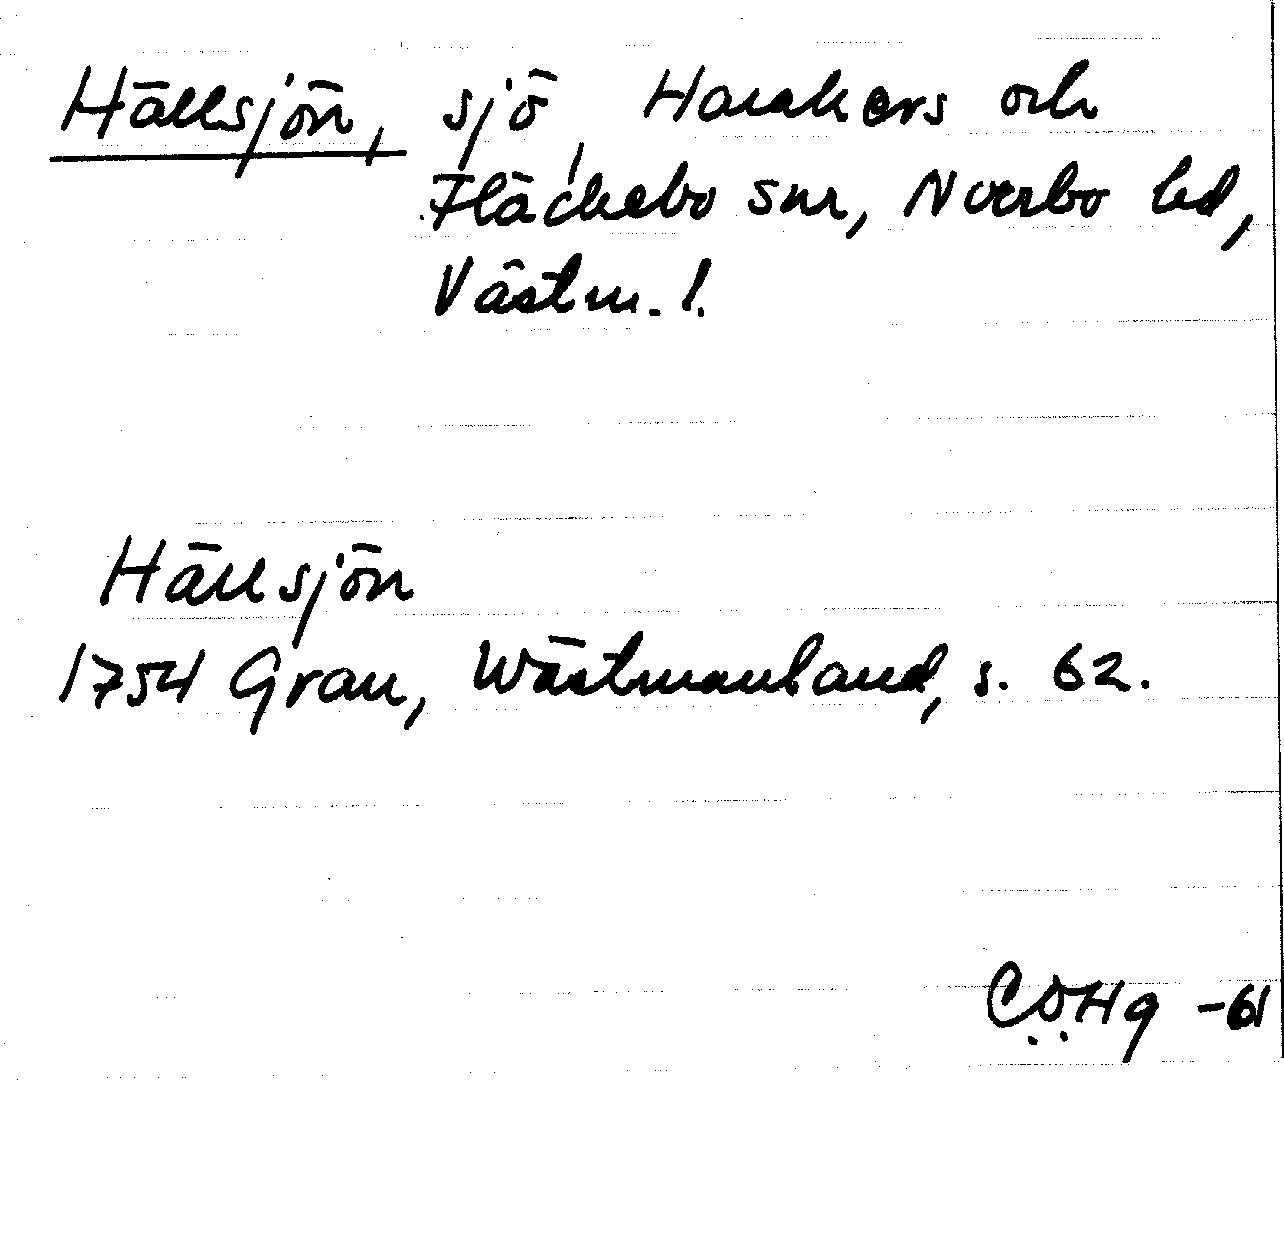 Hällsjön, sjö, Harakers och
Fläckebo snr, Norrbo hd,
Västm. l.
Hällsjön
1754 Grau, Wästmanland, s. 62.
CÖHg -61